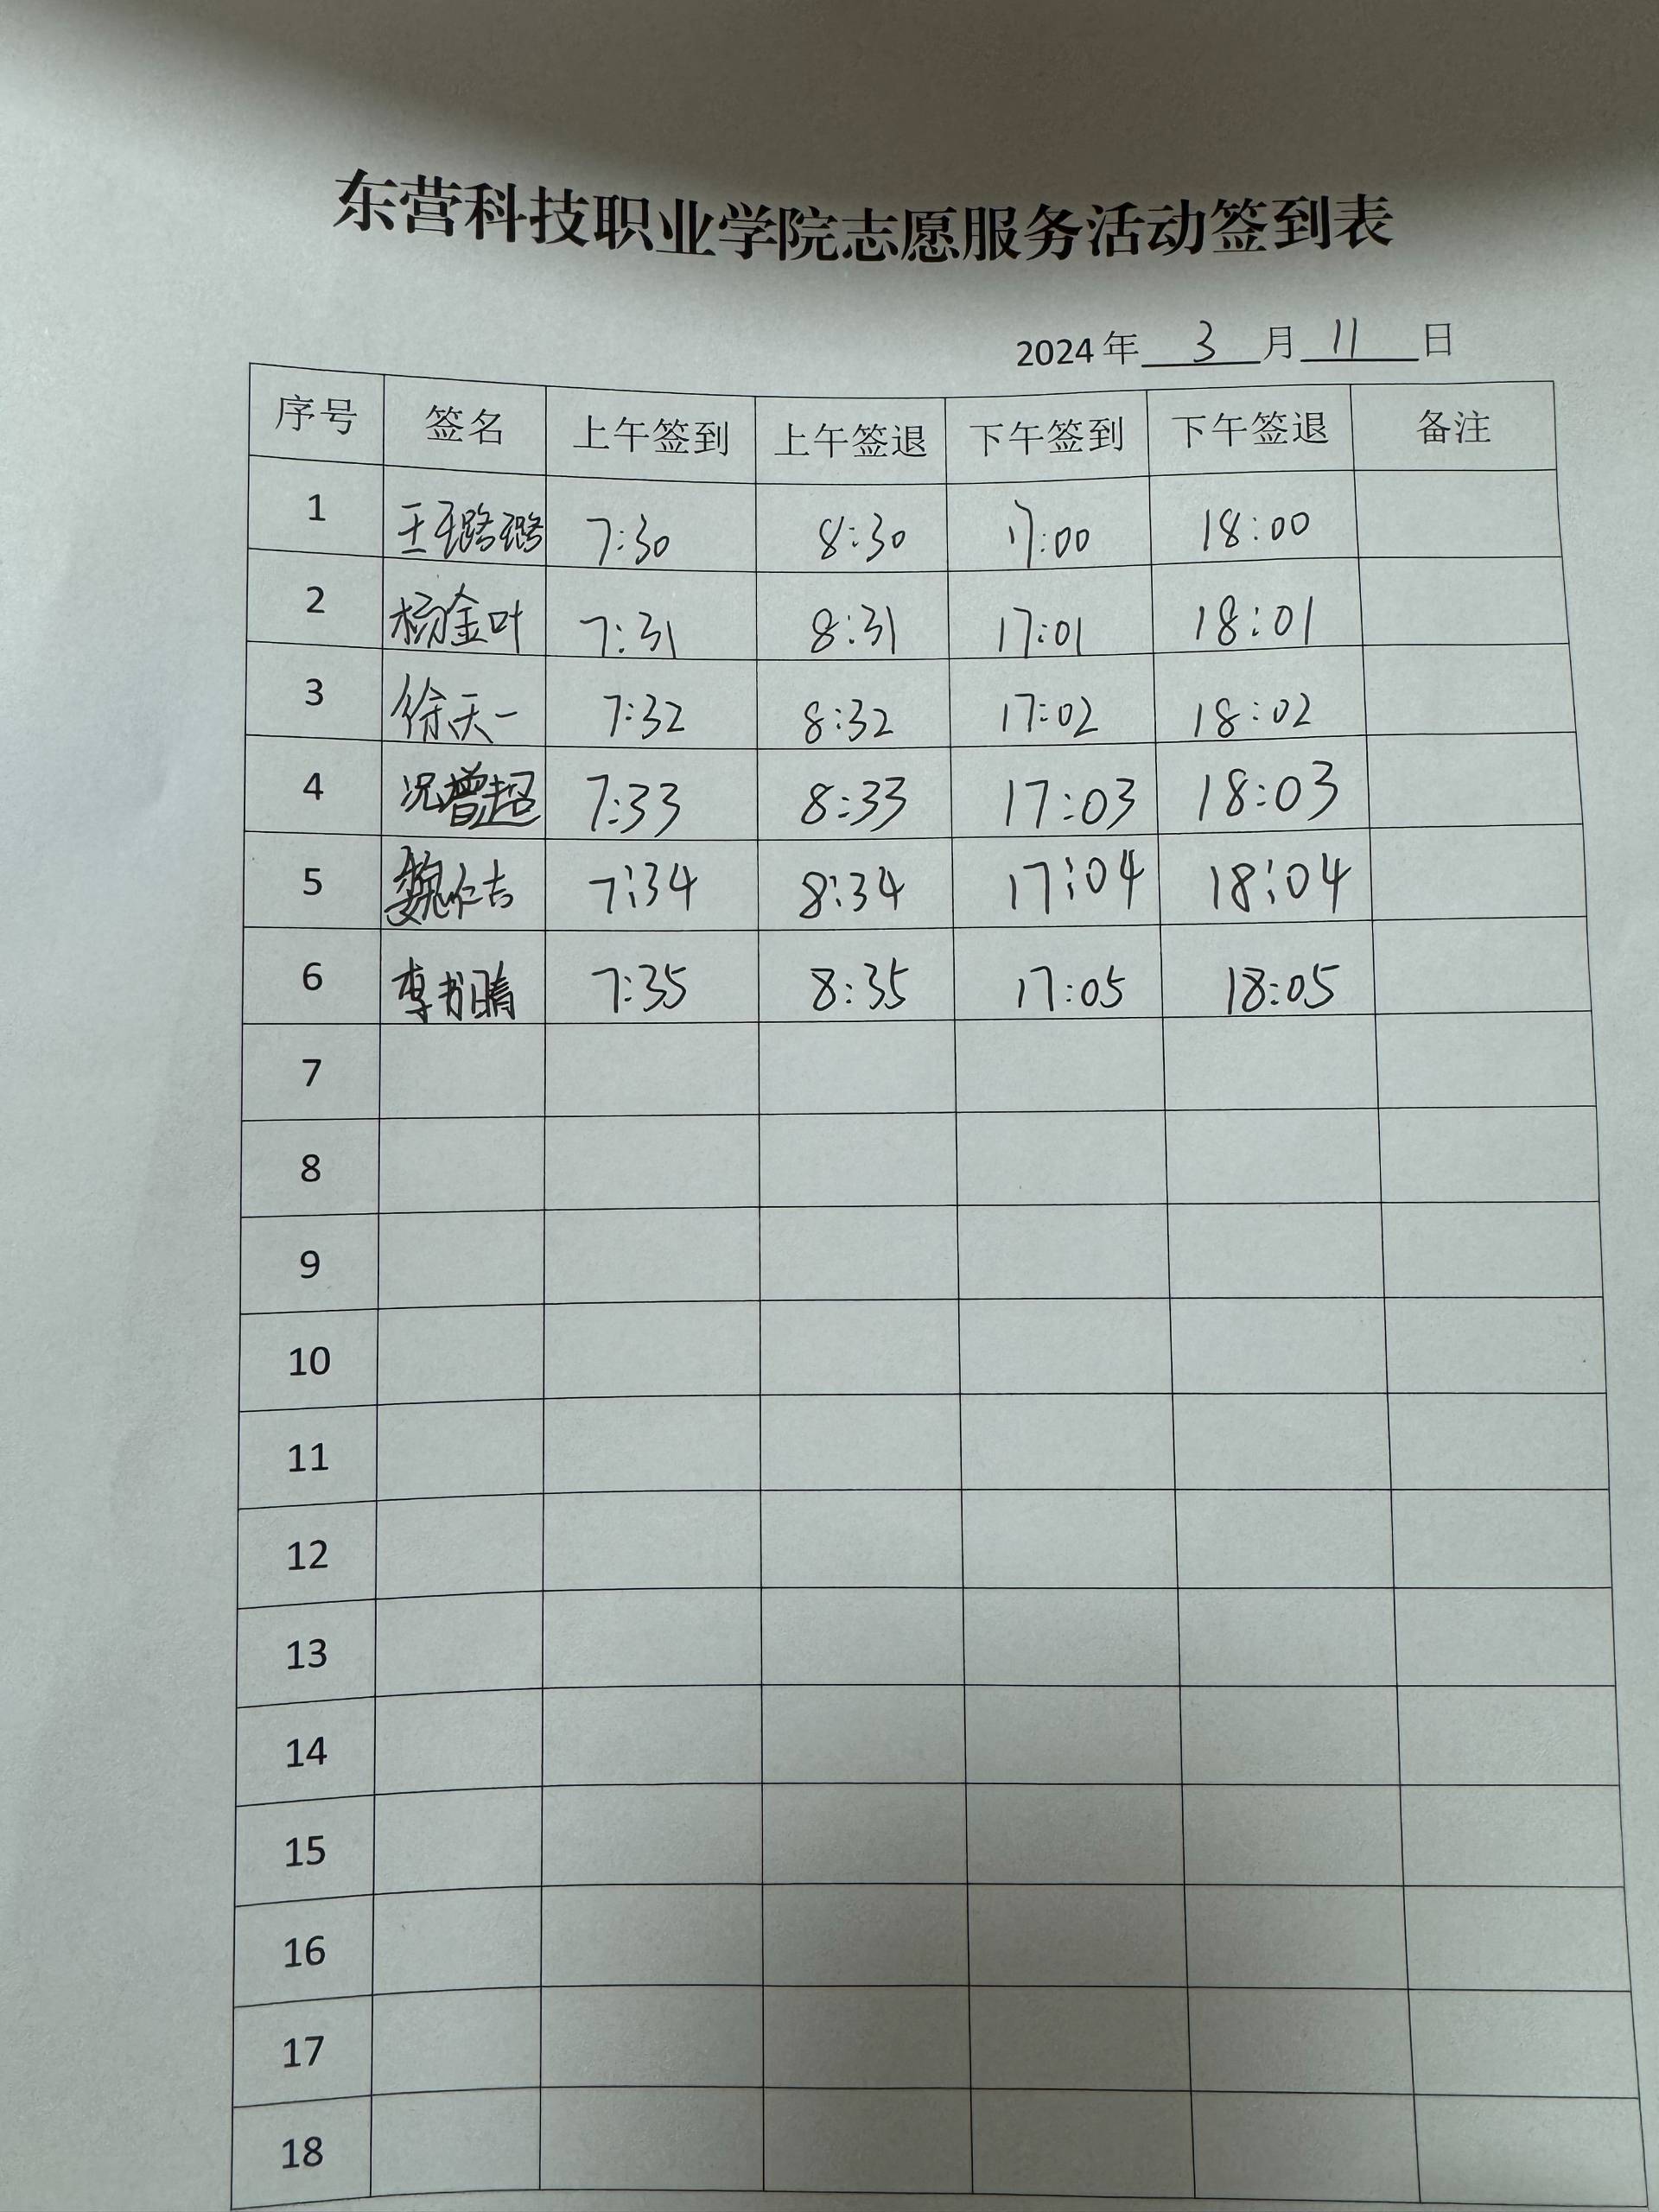 东营科技职业学院志愿服务活动签到表
2024 年 3 月 11 日
序号 签名 上午签到 上午签退 下午签到 下午签退 备注
1 王璐璐 7:30 8:30 17:00 18:00
2 杨金叶 7:31 8:31 17:01 18:01
3 徐天一 7:32 8:32 17:02 18:02
4 况曾超 7:33 8:33 17:03 18:03
5 魏仁吉 7:34 8:34 17:04 18:04
6 李书晴 7:35 8:35 17:05 18:05
7
8
9
10
11
12
13
14
15
16
17
18